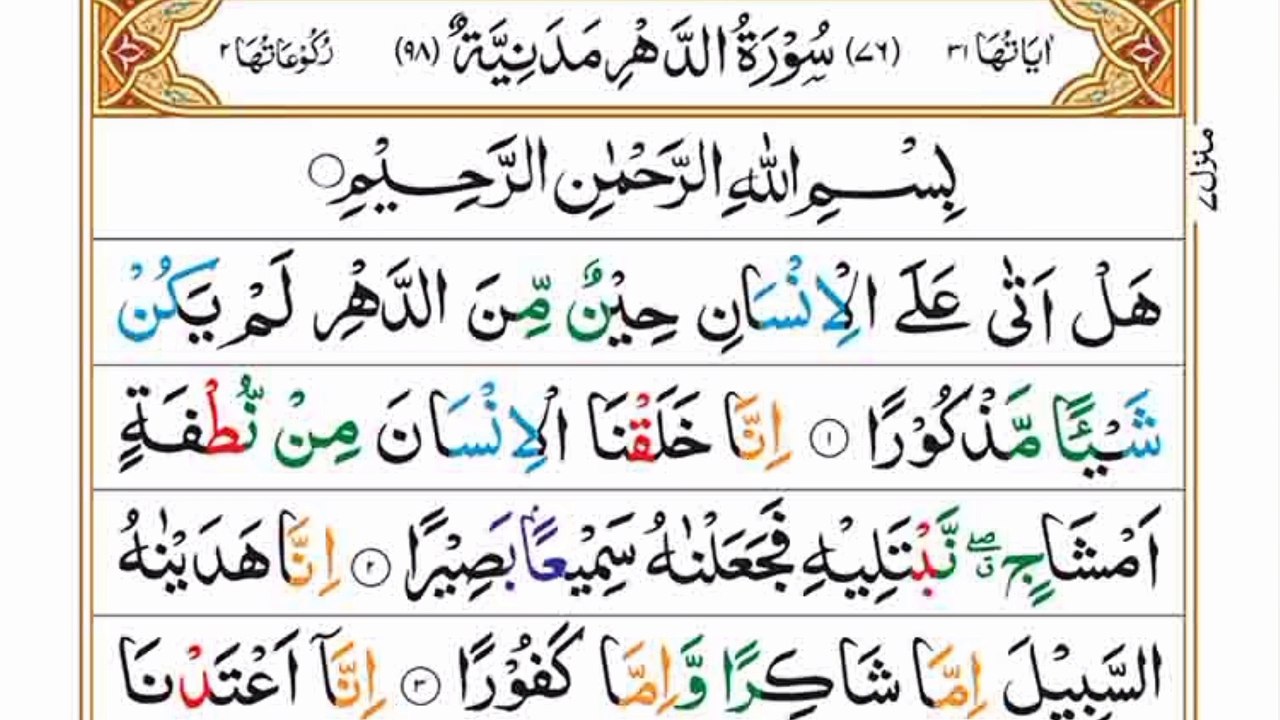 اٰيَاتُهَا ٣١ (٧٦) سُوْرَةُ الدَّهْرِ مَدَنِيَّةٌ (٩٨) رُكُوْعَاتُهَا ٢
بِسْمِ اللّٰهِ الرَّحْمٰنِ الرَّحِيْمِ
هَلْ اَتٰى عَلَى الْاِنْسَانِ حِيْنٌ مِّنَ الدَّهْرِ لَمْ يَكُنْ
شَيْـًٔا مَّذْكُوْرًا ١ اِنَّا خَلَقْنَا الْاِنْسَانَ مِنْ نُّطْفَةٍ
اَمْشَاجٍ ۖق نَّبْتَلِيْهِ فَجَعَلْنٰهُ سَمِيْعًاۢ بَصِيْرًا ٢ اِنَّا هَدَيْنٰهُ
السَّبِيْلَ اِمَّا شَاكِرًا وَّاِمَّا كَفُوْرًا ٣ اِنَّاۤ اَعْتَدْنَا
منزل ٧